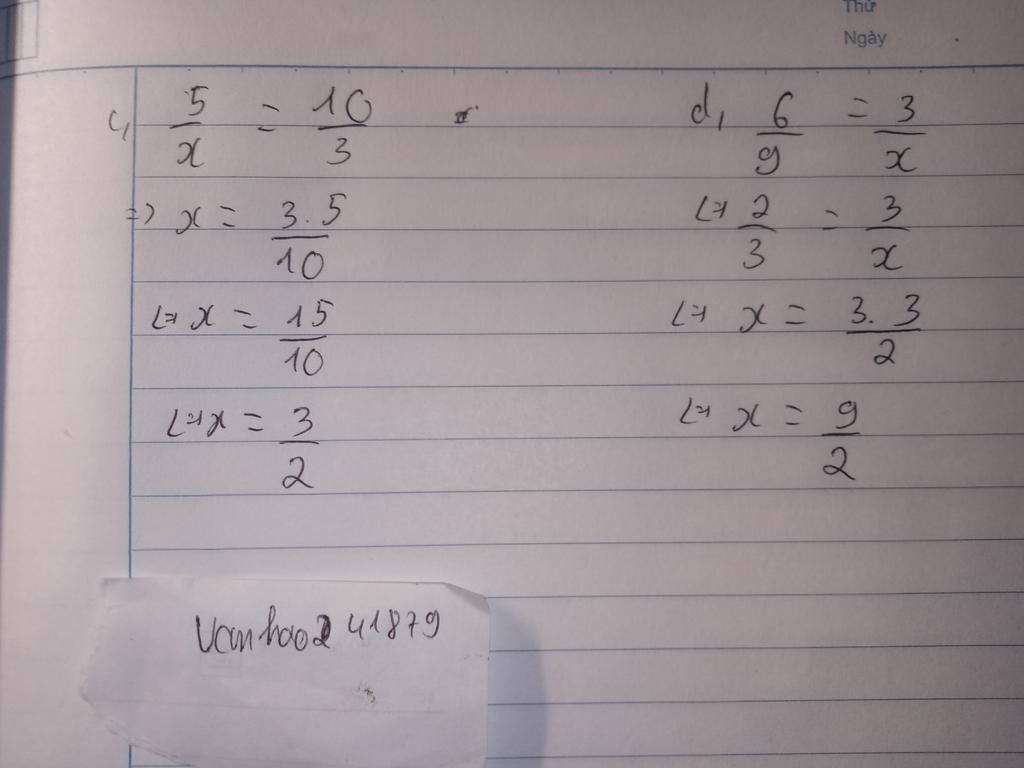 Thứ
Ngày
c, 5/x = 10/3
=> x = 3.5/10
<=> x = 15/10
<=> x = 3/2
d, 6/9 = 3/x
<=> 2/3 = 3/x
<=> x = 3.3/2
<=> x = 9/2
Vanhao241879